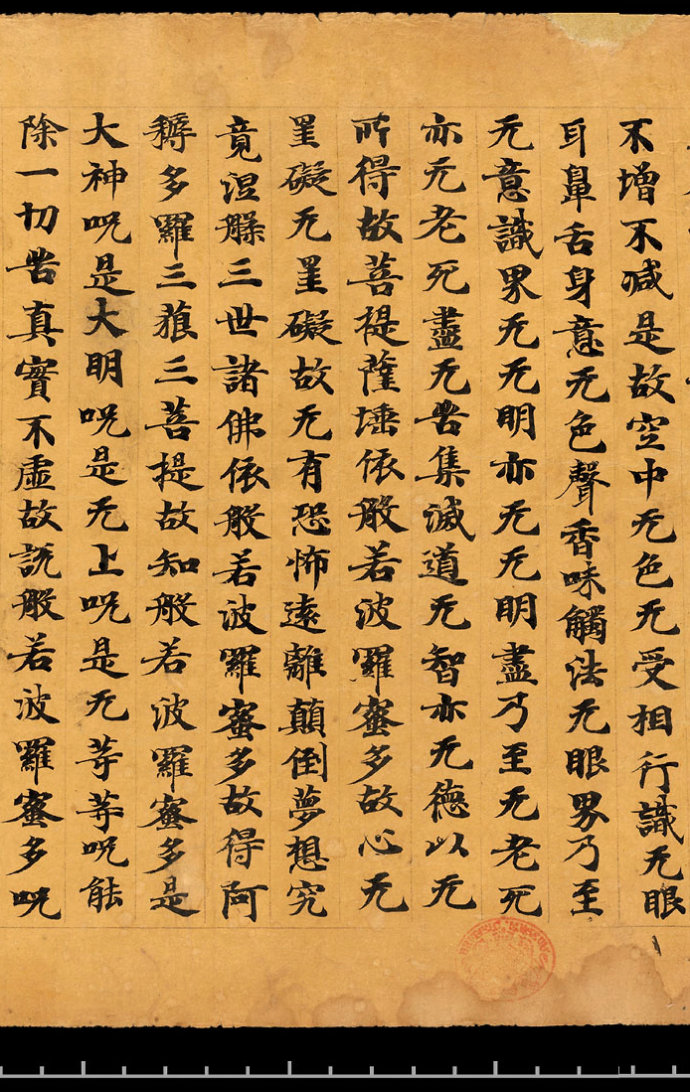 不增不減是故空中无色无受相行識无眼
耳鼻舌身意无色聲香味觸法无眼界乃至
无意識界无无明亦无无明盡乃至无老死
亦无老死盡无苦集滅道无智亦无德以无
所得故菩提薩埵依般若波羅蜜多故心无
罣礙无罣礙故无有恐怖遠離顛倒夢想究
竟涅槃三世諸佛依般若波羅蜜多故得阿
耨多羅三藐三菩提故知般若波羅蜜多是
大神呪是大明呪是无上呪是无等等呪能
除一切苦真實不虛故說般若波羅蜜多呪